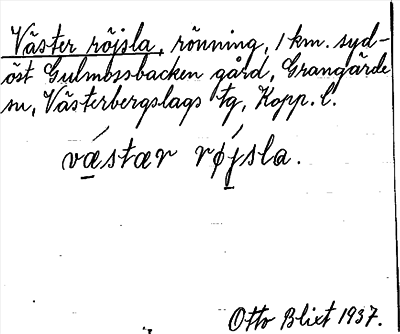 Väster röjsla, rönning, 1 km. syd-
öst Gulmossbacken gård, Grangärde
sn, Västerbergslags tg, Kopp. l.
västær røjsla.
Otto Blixt 1937.